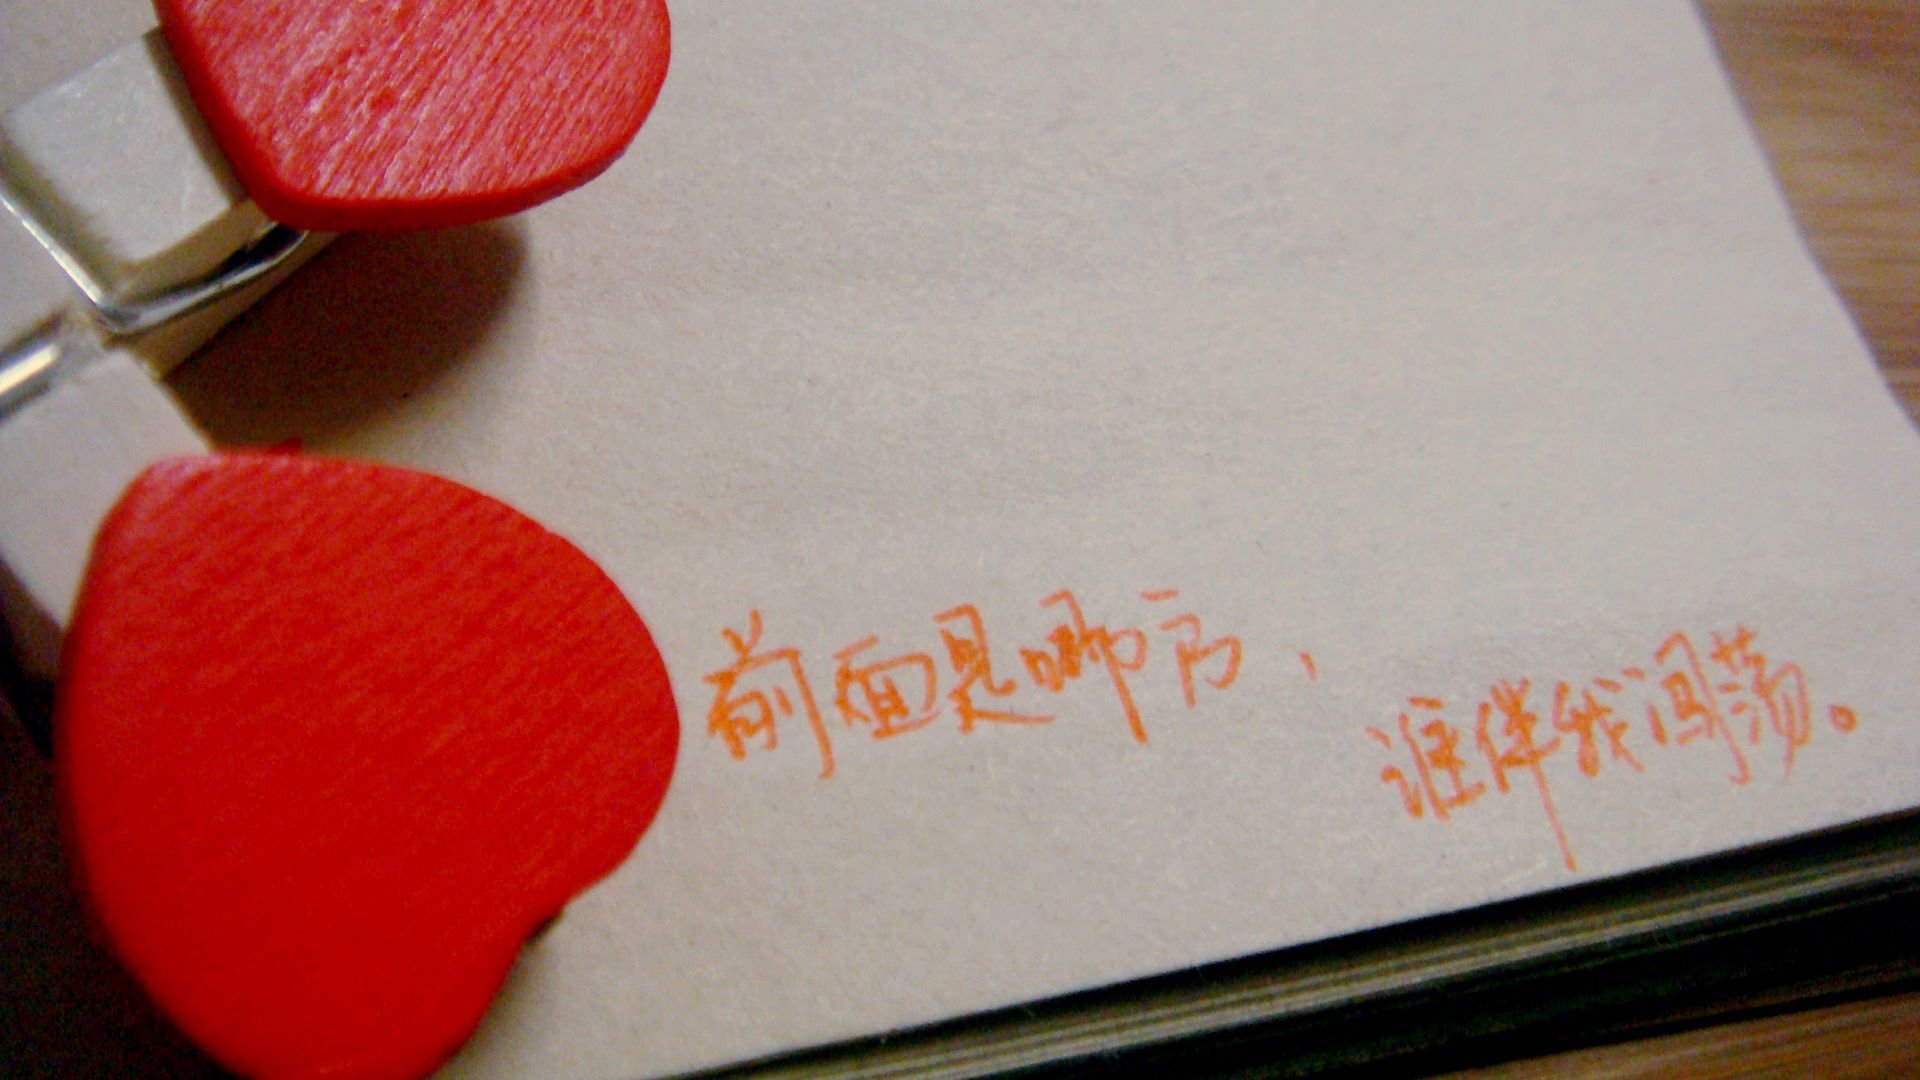 前面是哪方、
谁伴我闯荡。